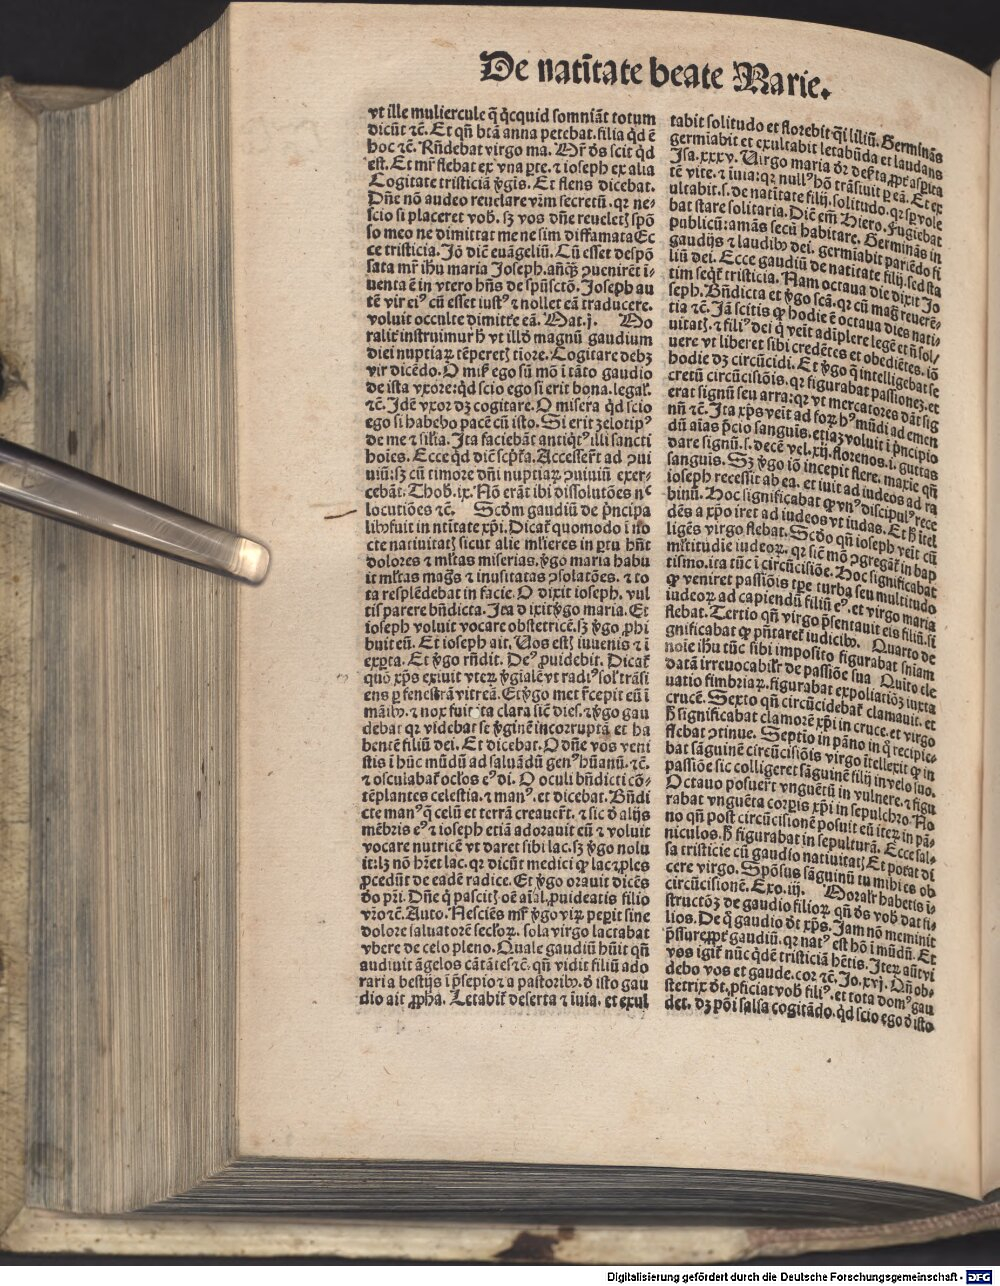 De natītate beate Marie.
vt ille muliercule q̄ q̇cquid somniāt totum
dicūt ⁊c̄. Et qn̄ btā anna petebat. filia q̇d ē
hoc ⁊c̄. Rn̄debat virgo ma. Mr̄ d̄s scit q̇d
est. Et mr̄ flebat ex vna ꝑte. ⁊ ioseph ex alia
Cogitate tristiciā v̄gis. Et flens dicebat.
Dn̄e nō audeo reuelare vr̄m secretū. qꝛ ne-
scio si placeret vob̄. sꝫ vos dn̄e reueletꝭ spō
so meo ne dimittat me ne sim diffamata Ec
ce tristicia. Jō dic̄ euāgeliū. Cū esset despō
sata mr̄ ihu maria Joseph. anq̄ꝫ ↄuenirēt ī-
uenta ē in vtero hn̄s de spūsctō. Joseph au
tē vir eiꝰ cū esset iustꝰ ⁊ nollet eā traducere.
voluit occulte dimittꝰe eā. Mat.j. Mo
ralit̄ instruimur h̄ vt illd̄ magnū gaudium
diei nuptiaꝝ tēperetꝭ tiore. Cogitare debꝫ
vir dicēdo. O mik̄ ego sū mō ī tāto gaudio
de ista vxore: q̇d scio ego si erit bona. legal̄.
⁊c̄. Jdē vxor dꝫ cogitare. O misera q̇d scio
ego si habebo pacē cū isto. Si erit zelotipꝰ
de me ⁊ sil̄ia. Jta faciebāt antiqͥ illi sancti
hoies. Ecce q̇d dic̄ scp̄t̄a. Accesser̄t ad ↄui
uiū: sꝫ cū timore dn̄i nuptiaꝝ ↄuiuiū exer-
cebāt. Thob.ix. Nō erāt ibi dissolutōes nᶜ
locutiōes ⁊c̄. Scd̄m gaudiū de p̄ncipa
libꝰ fuit in ntitate xp̄i. Dicat̄ quomodo ī no
cte natiuitatꝭ sicut alie ml̄ieres in ꝑtu hn̄t
dolores ⁊ ml̄tas miserias. v̄go maria habu
it ml̄tas mag̃s ⁊ inusitatas ↄsolatōes. ⁊ to
ta resplēdebat in facie. O dixit ioseph. vul
tis parere bn̄dicta. Jta dixit v̄go maria. Et
ioseph voluit vocare obstetricē. sꝫ v̄go ꝓhi
buit eū. Et ioseph ait. Uos estꝭ iuuenis ⁊ ī
exꝑta. Et v̄go rn̄dit. Deꝰ ꝓuidebit. Dicat̄
quō xp̄s exiuit vteꝝ v̄gialē vt radiꝰ sol̄ trāsi
ens ꝑ fenestrā vitreā. Et v̄go met r̄cepit eū ī
māibꝰ. ⁊ nox fuit ita clara sic̄ dies. ⁊ v̄go gau
debat qꝛ videbat se v̄ginē incorruptā et ha
bentē filiū dei. Et dicebat. O dn̄e vos veni
stis ī hūc mūdū ad saluādū genꝰ hūanū. ⁊c̄.
⁊ osculabat̄ ocl̄os eꝰ di. O oculi bn̄dicti cō-
tēplantes celestia. ⁊ manꝰ. et dicebat. Bn̄di
cte manꝰ q̄ celū et terrā creauer̄t. ⁊ sic d̄ alijs
mēbris eꝰ ⁊ ioseph etiā adorauit eū ⁊ voluit
vocare nutricē vt daret sibi lac. sꝫ v̄go nolu
it: lꝫ nō hr̄et lac. qꝛ dicūt medici ꝙ lac ⁊ ꝓles
ꝓcedūt de eadē radice. Et v̄go orauit dicēs
do pr̄i. Dn̄e q̄ pascitꝭ oē aīal. ꝓuideatis filio
vr̄o ⁊c̄. Aucto. Nesciēs mr̄ v̄go viꝝ peꝑit sine
dolore saluatorē secl̄oꝝ. sola virgo lactabat
vbere de celo pleno. Quale gaudiū hūit qn̄
audiuit āgelos cātātes ⁊c̄. qn̄ vidit filiū ado
rari a bestijs ī p̄sepio ⁊ a pastoribꝰ. d̄ isto gau
dio ait ꝓpha. Letabit̄ deserta ⁊ īuia. et exul
tabit solitudo et florebit q̄i liliū. Germinās
germiabit et exultabit letabūda et laudans
Jsa.xxxv. Uirgo maria d̄r deẜta, ꝓpt̄ asꝑita
tē vite. ⁊ iuia: qꝛ nullꝰ hō trāsiuit ꝑ eā. Et ex
ultabit. s. de natītate filij. solitudo. qꝛ sꝑ vole
bat stare solitaria. Dic̄ em̄ Hiero. Fugiebat
publicū: amās secū habitare. Germinās in
gaudijs ⁊ laudibꝰ dei. germiabit pariēdo fi
liū dei. Ecce gaudiū de natitate filij. sed sta
tim seqͥt̄ tristicia. Nam octaua die dixit Jo
seph. Bn̄dicta et v̄go scā. qꝛ cū mag̃ reuerē-
tia ⁊c̄. Jā scitis ꝙ hodie ē octaua dies nati-
uitatꝭ. ⁊ filiꝰ dei q̇ veīt adīplere legē et n̄ sol/
uere vt liberet sibi credētes et obediētes. iō
hodie dꝫ circūcidi. Et v̄go q̄ intelligebat se
cretū circūcisiōis. qꝛ figurabat passionez. et
erat signū seu arra: qꝛ vt mercatores dāt sig
nū ⁊c̄. Jta xp̄s veīt ad foꝝ hꝰ mūdi ad emen
dū aīas p̄cio sanguis. etiaz voluit ī p̄ncipio
dare signū. s. decē vel.xij. florenos. i. guttas
sanguis. Sꝫ v̄go iō incepit flere. maxie qn̄
ioseph recessit ab ea. et iuit ad iudeos ad ra
binū. Hoc significabat ꝙ vnꝰ discipulꝰ rece
dēs a xp̄o iret ad iudeos vt iudas. Et h̄ ītel
ligēs virgo flebat. Scd̄o qn̄ ioseph veīt cū
ml̄titudie iudeoꝝ. qꝛ sic̄ mō ↄgregāt̄ in bap
tismo. ita tūc ī circūcisiōe. Hoc significabat
ꝙ veniret passiōis tp̄e turba seu multitudo
iudeoꝝ ad capiendū filiū eꝰ. et virgo maria
flebat. Tertio qn̄ virgo p̄sentauit eis filiū. si
gnificabat ꝙ p̄ntaret̄ iudicibꝰ. Quarto de
noie ihu tūc sibi imposito figurabat sniam
datā irreuocabilr̄ de passiōe sua Quito ele
uatio fimbriaꝝ. figurabat expoliatiōꝫ iuxta
crucē. Sexto qn̄ circūcidebat̄ clamauit. et
h̄ significabat clamorē xp̄i in cruce. et virgo
flebat ↄtinue. Septio in pāno in q̇ recipie-
bat sāguinē circūcisiōis virgo ītellexit ꝙ in
passiōe sic colligeret sāguinē filij in velo suo.
Octauo posuer̄t vnguētū in vulnere. ⁊ figu
rabat vnguēta corꝑis xp̄i in sepulchro. No
no qn̄ post circūcisionē posuit eū iteꝝ in pā-
niculos. h̄ figurabat in sepulturā. Ecce sal-
sa tristicie cū gaudio natiuitatꝭ Et potat di
cere virgo. Spōsus sāguinū tu mihi es ob
circūcisionē. Exo.iij. Moralr̄ habetis ī-
structōꝫ de gaudio filioꝝ qn̄ d̄s vob̄ dat fi-
lios. De q̄ gaudio d̄t xp̄s. Jam nō meminit
p̄ssure ꝓpt̄ gaudiū. qꝛ natꝰ est hō ī mūdū. Et
vos igit̄ nūc q̇dē tristiciā hētis. Iteꝝ aūt vi
debo vos et gaude. cor ⁊c̄. Jo.xvj. Qn̄ ob-
stetrix d̄t. ꝓficiat vob̄ filiꝰ. et tota domꝰ gau
det. dꝫ pōi salsa cogitādo. q̇d scio ego d̄ isto
Digitalisierung gefördert durch die Deutsche Forschungsgemeinschaft - DFG